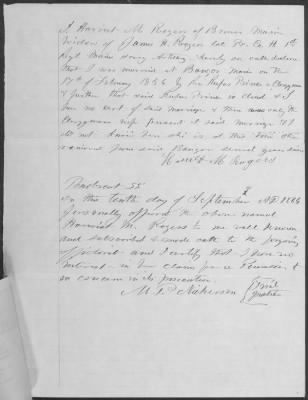 I Harriet M Rogers of Brewer Maine
Widow of James H. Rogers late Pr. Co. H. 1st
Regt Maine Heavy Artillery hereby on oath declare
that I was married at Bangor Maine on the
17th of February 1856 by Rufus Prince a Clergyman
& further that said Rufus Prince is dead & I
have no rect of said marriage & that was only the
Clergyman present at said marriage & I
do not know who is at this time
removed from said Bangor several years since
Harriet M. Rogers
Penobscot SS
On the tenth day of September AD 1864
personally appeared the above named
Harriet M. Rogers to me well known
and subscribed & made oath to the foregoing
affidavit and I certify that I have no
interest in the claim for a Pension &
no concern in its prosecution